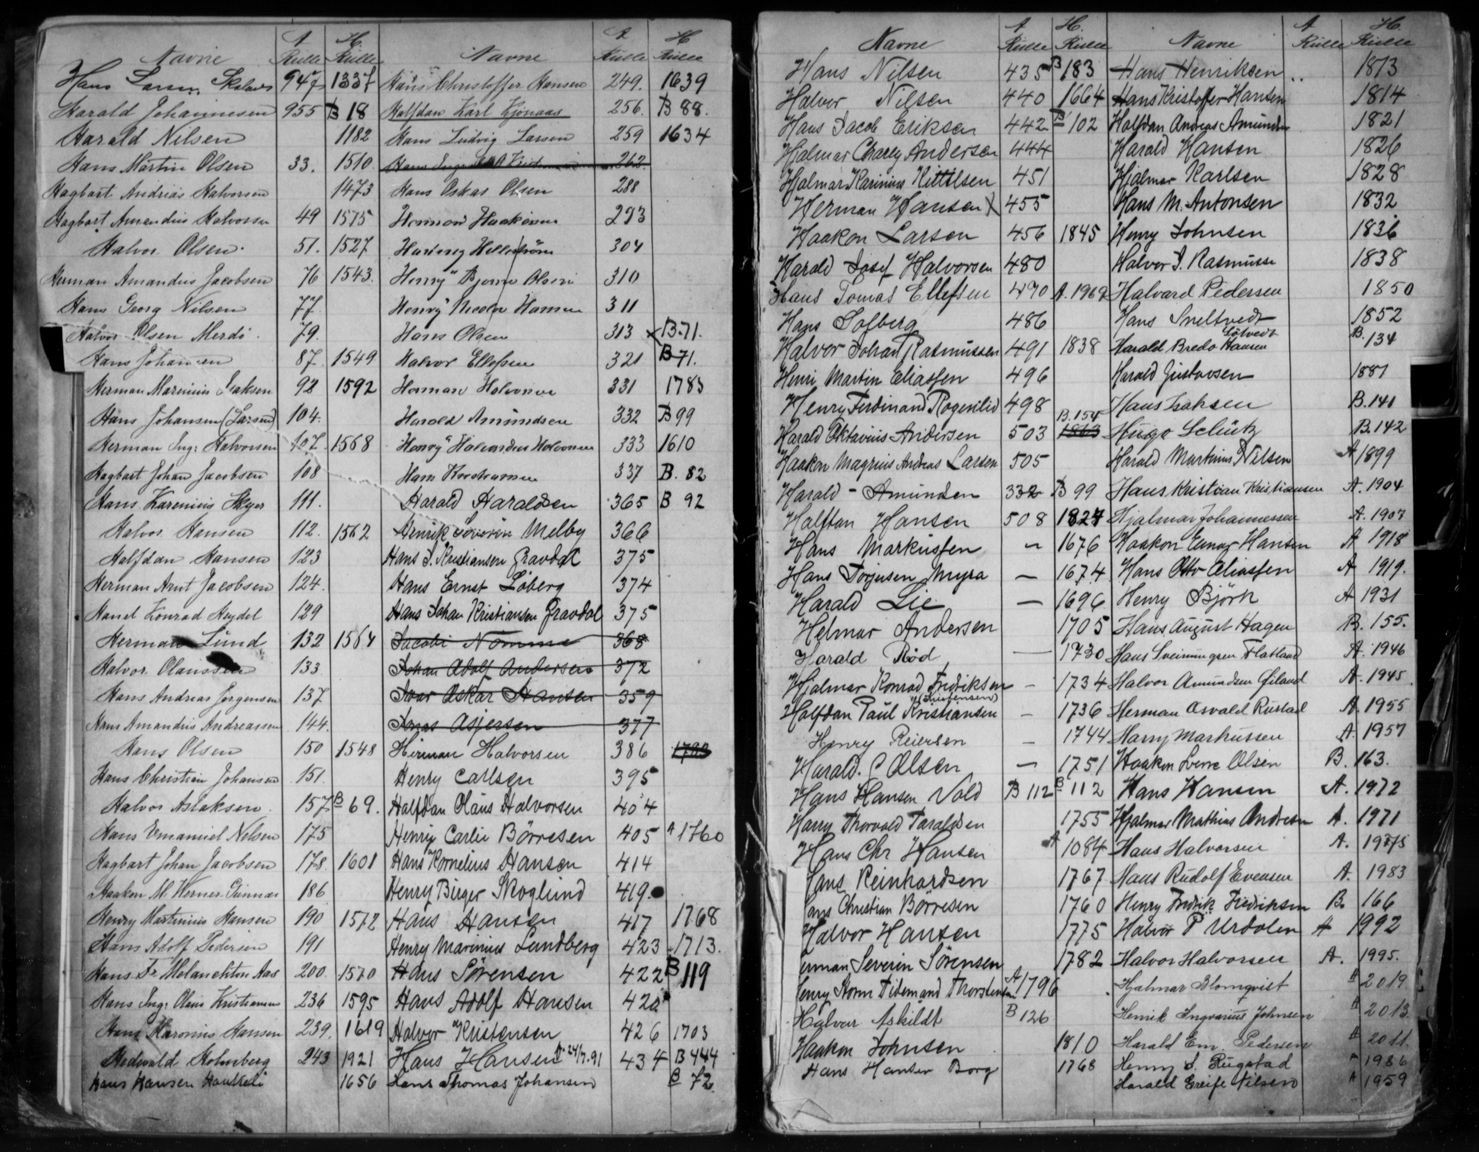 Navne A Rulle H Rulle Navne A Rulle H Rulle
Hans Larsen 947 1337 Hans Christoffer Hansen 249. 1639
Harald Johannesen 955 B 18 Halfdan Karl Kjonaas 256. B 88.
Harald Nilsen 1182 Hans Ludvig Larsen 259 1634
Hans Martin Olsen 33. 1510 Hans 262
Hagbart Andreas Halvorsen 1473 Hans Oskar Olsen 288
Hagbart Amandus Halvorsen 49 1575 Herman Haakonsen 293
Halvor Olsen. 51. 1527 Hartvig Hellström 304
Herman Amandus Jacobsen 76 1543. Henry Bjorne Olsen 310
Hans Georg Nilsen 77. Henry Nicolai Hansen 311
Halvor Olsen Merdö 79. Hans Olsen 313 B.71.
Hans Johansen 87. 1549 Halvor Ellefsen 321 B 71.
Herman Marenius Isaksen 92 1592 Herman Halvorsen 331 1783
Hans Johansen (Larsen) 104. Harald Amundsen 332 B 99
Herman Ing. Halvorsen 107. 1568 Henry Halvordus Halvorsen 333 1610
Hagbart Johan Jacobsen 108 Hans Thorstensen 337 B. 82
Hans Karenius Meyer 111. Harald Haraldsen 365 B 92
Halvor Hansen 112. 1562 Henrik Severin Melby 366
Halfdan Hansen 123 Hans J. Kristiansen Gravdal 375
Herman Arnt Jacobsen 124. Hans Ernst Löberg 374
Hans Konrad Heydel 129 Hans Johan Kristiansen Gravdal 375
Herman Lund 132 1564 Jacob Nomme 368
Halvor Olaussen 133 Johan Adolf Andersen 372
Hans Andreas Jörgensen 137 Ivar Oskar Hansen 359
Hans Amandus Andreassen 144. Jonas Asjersen 377
Hans Olsen 150 1548 Herman Halvorsen 386 1790
Hans Christian Johansen 151. Henry Carlsen 395
Halvor Aslaksen. 157. B 69. Halfdan Olaus Halvorsen 404
Hans Emanuel Nilsen 175 Henry Carlie Börresen 405 A 1760
Hagbart Johan Jacobsen 178. 1601 Hans Kornelius Hansen 414
Haaken M. Werner Gunnar 186 Henry Birger Skoglund 419
Henry Martinius Hansen 190 1572 Hans Hansen 417 1768
Hans Adolf Pedersen 191 Henry Marinius Lundberg 423 1713.
Hans Fr. Melanchton Aas 200. 1570 Hans Sörensen 422 B 119
Hans Ing. Olaus Kristiansen 236 1595 Hans Adolf Hansen 420
Hans Maronius Hansen 239. 1619 Halvor Kristensen 426 1703
Hedwald Holmberg 243 1921 Hans Hansen 24/7.91 434 B 444
Hans Hansen Haukedo 1656 Hans Thomas Johansen B 72
Navne A Rulle H. Rulle Navne A Rulle H. Rulle
Hans Nilsen 435 B 183 Hans Henriksen .. 1813
Halvor Nilsen 440 1664 Hans Kristoffer Hansen 1814
Hans Jacob Eriksen 442 B 102 Halfdan Andreas Amundsen 1821
Hjalmar Charley Andersen 444 Harald Hansen 1826
Hjalmar Karinius Kittilsen 451 Hjalmar Karlsen 1828
Herman Hansen X 455 Hans M. Antonsen 1832
Haakon Larsen 456 1845 Henry Johnsen 1836
Harald Josef Halvorsen 480 Halvor S. Rasmussen 1838
Hans Tomas Ellefsen 470 A. 1962 Halvard Pedersen 1850
Hans Solberg 486 Hans Sneltvedt 1852
Halvor Johan Rasmussen 491 1838 Harald Bredo Hansen Götvedt B. 134
Henri Martin Eliassen 496 Harald Gustavsen 1887
Henry Ferdinand Rogenlid 498 Hans Isaksen B. 140
Harald Oktavius Andersen 503 B. 154 1863 Hugo Schütz B. 142
Haakon Magnus Andreas Larsen 505 Harald Martinius Nilsen A 1899
Harald - Amundsen 332 B 99 Hans Kristian Kristiansen A. 1904
Halfdan Hansen 508 1827 Hjalmar Johannessen A. 1907
Hans Markussen - 1676 Haakon Einar Hansen A 1918
Hans Torjusen Myra - 1674 Hans Otto Eliassen A 1919.
Harald Lie - 1696 Henry Björk A 1931
Helmar Andersen 1705 Hans August Hagen B. 155.
Harald Röd - 1730 Hans Flatland A. 1946
Hjalmar Konrad Fredriksen - 1734 Halvor Amundsen A. 1945.
Halfdan Paul Kristiansen (Sörensen) - 1736 Herman Osvald Rustad A. 1955
Henry Reiersen - 1744 Harry Markussen A 1957
Harald. C Olsen - 1751 Haakon Sverre Olsen B. 163.
Hans Hansen Vold B 112 B 112 Hans Hansen A. 1972
Harry Thorvald Taraldsen 1755 Hjalmar Mathias Andersen A. 1971
Hans Chr. Hansen A 1084 Hans Halvorsen A. 1975
Hans Reinhardsen 1767 Hans Rudolf Evensen A. 1983
Hans Christian Borresen 1760 Henry Fredrik Fredriksen B. 166
Halvor Hansen 1775 Halvor P Urdalen A 1992
Herman Severin Sörensen 1782 Halvor Halvorsen A. 1995.
Henry Storm Tidemand Thorstensen A 1796 Hjalmar Blomqvist A 2019
Halvor Askildt B 126 Henrik Ingvarius Johnsen A 2013
Haakon Johnsen 1810 Harald Em. Pedersen A 2011.
Hans Hansen Borg 1768 Henry S. Rugstad A 1986
Harald Greife Nilsen A 1959